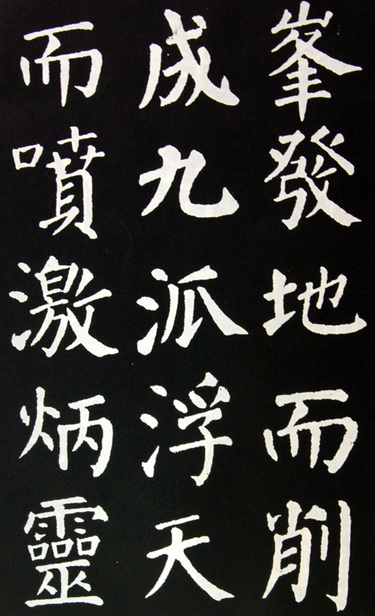 峯發地而削
成九派浮天
而噴激炳靈